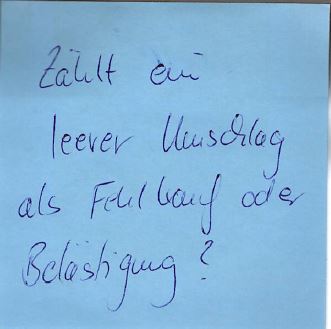 Zählt ein
leerer Umschlag
als Fehlkauf oder
Belästigung?